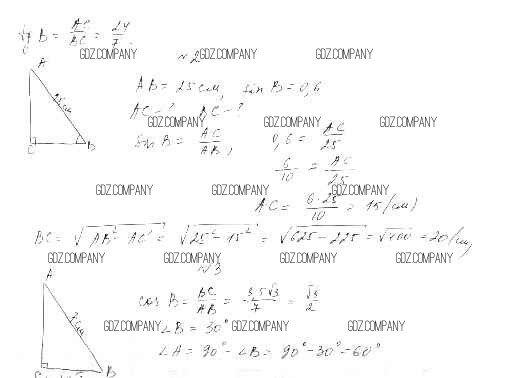 tg B = AC/BC = 24/7.
GDZ.COMPANY GDZ.COMPANY GDZ.COMPANY
№2
A
25 см
C B
AB = 25 см, sin B = 0,6
AC - ? BC - ?
GDZ.COMPANY GDZ.COMPANY GDZ.COMPANY
sin B = AC/AB, 0,6 = AC/25
6/10 = AC/25
GDZ.COMPANY GDZ.COMPANY GDZ.COMPANY
AC = 6·25/10 = 15 (см)
BC = √AB² - AC² = √25² - 15² = √625 - 225 = √400 = 20 (см)
GDZ.COMPANY GDZ.COMPANY GDZ.COMPANY GDZ.COMPANY
№3
A
7 см
B
cos B = BC/AB = 3,5√3/7 = √3/2
GDZ.COMPANY GDZ.COMPANY GDZ.COMPANY
∠B = 30°
∠A = 90° - ∠B = 90° - 30° = 60°